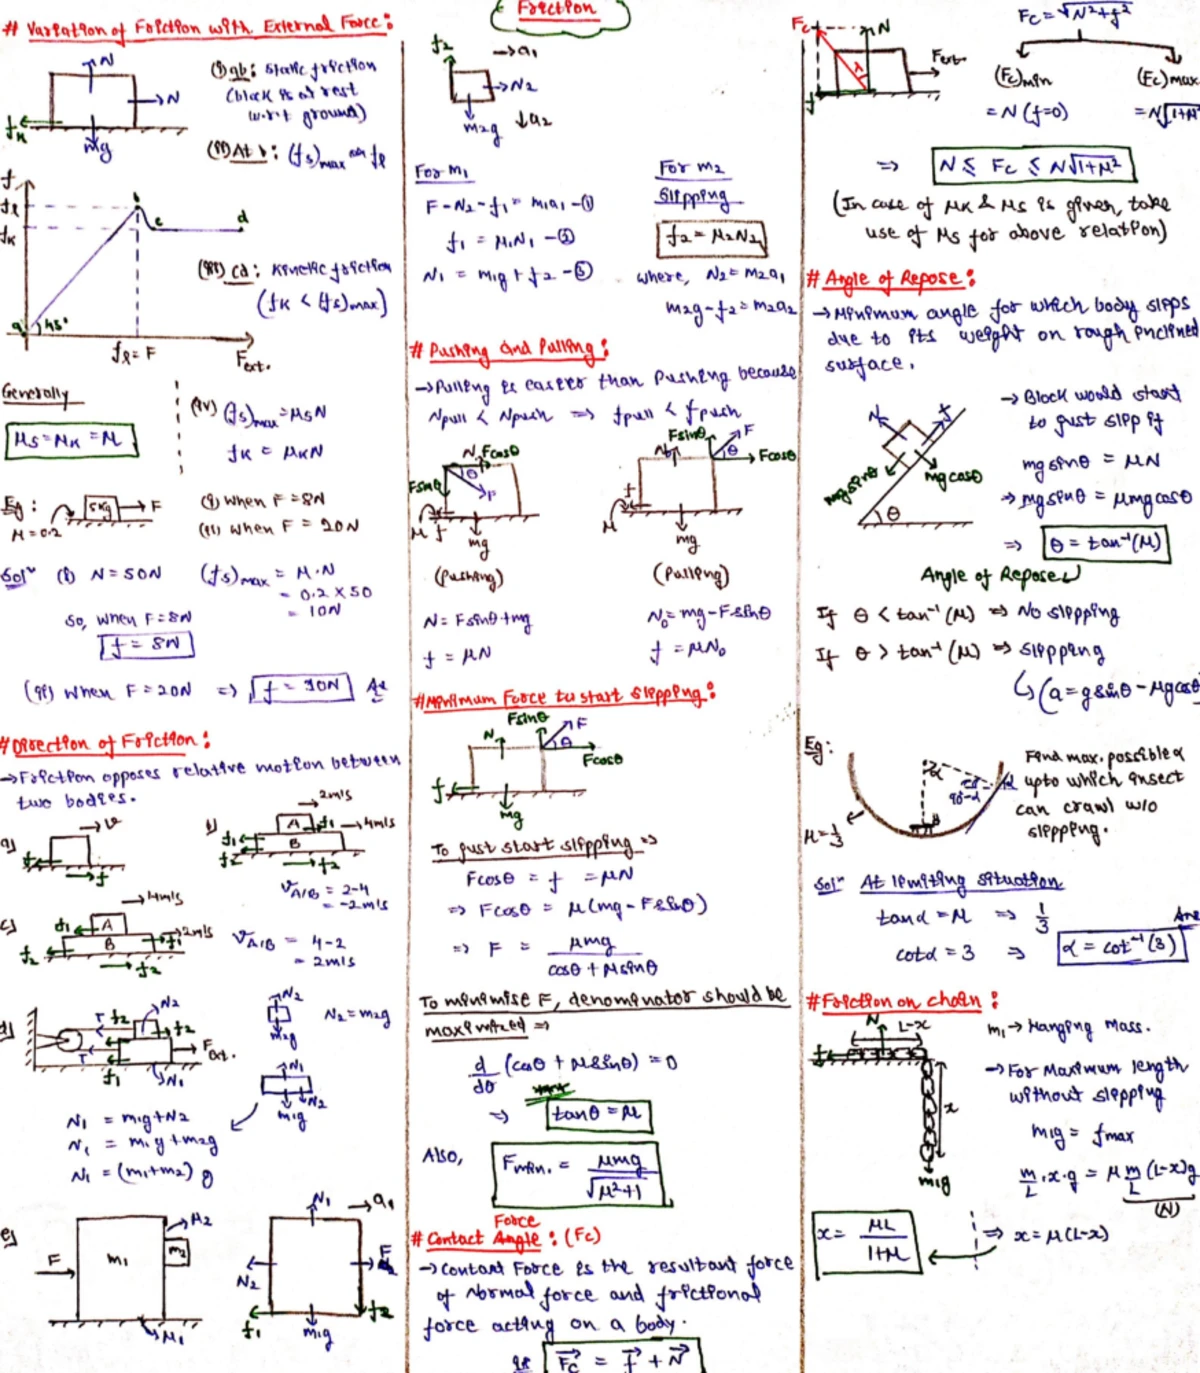 # Variation of Friction with External Force:
N
N
fk
mg
(i) ab: Static friction
(block is at rest
w.r.t ground)
(ii) At b: (fs)max or fl
f
fl
fk
b
c
d
a
45°
fl = F
Fext.
(iii) cd: Kinetic friction
(fk < (fs)max)
Generally
μs = μk = μ
(iv) (fs)max = μsN
fk = μkN
Eg:
5kg
F
μ=0.2
(i) When F = 8N
(ii) When F = 20N
Solⁿ (i) N = 50N
(fs)max = μ·N
= 0.2 × 50
= 10N
so, when F = 8N
f = 8N
(ii) when F = 20N ⇒ f = 10N Ans
# Direction of Friction:
→ Friction opposes relative motion between
two bodies.
a)
v
f
f
b)
2m/s
A
f1
4m/s
f1
B
f2
f2
VA/B = 2-4
= -2m/s
c)
4m/s
f1
A
2m/s
B
f1
f2
f2
VA/B = 4-2
= 2m/s
d)
N2
T
f2
f2
T
F
ext.
f1
N1
N2
m2g
N2 = m2g
N1
N2
m1g
N1 = m1g + N2
N1 = m1g + m2g
N1 = (m1+m2) g
e)
F
m1
m2
μ2
μ1
N1
a1
F
N2
f1
f2
m1g
Friction
f2
a1
N2
m2g
a2
For m1
F - N2 - f1 = m1a1 - ①
f1 = μ1N1 - ②
N1 = m1g + f2 - ③
For m2
Slipping
f2 = μ2N2
where, N2 = m2a1
m2g - f2 = m2a2
# Pushing and Pulling:
→ Pulling is easier than Pushing because
Npull < Npush ⇒ fpull < fpush
N
Fcosθ
Fsinθ
θ
F
μ
f
mg
(Pushing)
N = Fsinθ + mg
f = μN
Fsinθ
F
θ
Fcosθ
f
μ
mg
(Pulling)
N0 = mg - Fsinθ
f = μN0
# Minimum Force to start slipping:
Fsinθ
F
N
θ
Fcosθ
f
mg
To just start slipping ⇒
Fcosθ = f = μN
⇒ Fcosθ = μ(mg - Fsinθ)
⇒ F = μmg / cosθ + μsinθ
To minimise F, denominator should be
maximized ⇒
d/dθ (cosθ + μsinθ) = 0
⇒ tanθ = μ
Also, Fmin. = μmg / √μ²+1
Force
# Contact Angle: (Fc)
→ Contact Force is the resultant force
of Normal force and frictional
force acting on a body.
Fc = f + N
Fc
N
λ
Fext.
f
Fc = √N²+f²
(Fc)min
= N (f=0)
(Fc)max
= N√1+μ²
⇒ N ≤ Fc ≤ N√1+μ²
(In case of μk & μs is given, take
use of μs for above relation)
# Angle of Repose:
→ Minimum angle for which body slips
due to its weight on rough inclined
surface.
N
f
mgsinθ
mgcosθ
θ
→ Block would start
to just slip if
mgsinθ = μN
⇒ mgsinθ = μmgcosθ
⇒ θ = tan⁻¹(μ)
Angle of Repose
If θ < tan⁻¹(μ) ⇒ No slipping
If θ > tan⁻¹(μ) ⇒ slipping
(a = gsinθ - μgcosθ
Eg:
α
α
90-α
μ=1/3
Find max. possible α
upto which insect
can crawl w/o
slipping.
Solⁿ At limiting situation
tanα = μ ⇒ 1/3
cotα = 3 ⇒ α = cot⁻¹(3)
Ans
# Friction on chain:
N
L-x
f
x
m1g
m1 → Hanging Mass.
→ For Maximum length
without slipping
m1g = fmax
m/L · x · g = μ m/L (L-x)g
(N)
⇒ x = μ(L-x)
x = μL / 1+μ